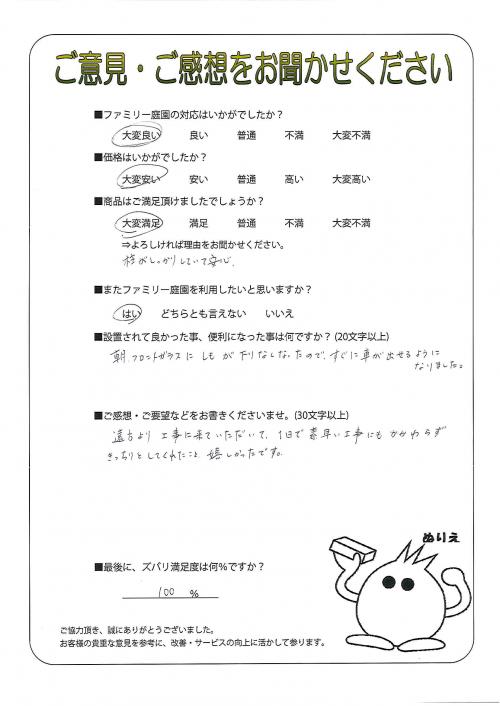 ご意見・ご感想をお聞かせください
■ファミリー庭園の対応はいかがでしたか?
大変良い 良い 普通 不満 大変不満
■価格はいかがでしたか?
大変安い 安い 普通 高い 大変高い
■商品はご満足頂けましたでしょうか?
大変満足 満足 普通 不満 大変不満
⇒よろしければ理由をお聞かせください。
柱がしっかりしていて安心。
■またファミリー庭園を利用したいと思いますか?
はい どちらとも言えない いいえ
■設置されて良かった事、便利になった事は何ですか? (20文字以上)
朝、フロントガラスに しもが 下りなくなったので、すぐに車が出せるように
なりました。
■ご感想・ご要望などをお書きくださいませ。(30文字以上)
遠方より 工事に来ていただいて、1日で 素早い工事にも かかわらず
きっちりとしてくれたこと 嬉しかったです。
ぬりえ
■最後に、ズバリ満足度は何%ですか?
100 %
ご協力頂き、誠にありがとうございました。
お客様の貴重な意見を参考に、改善・サービスの向上に活かして参ります。